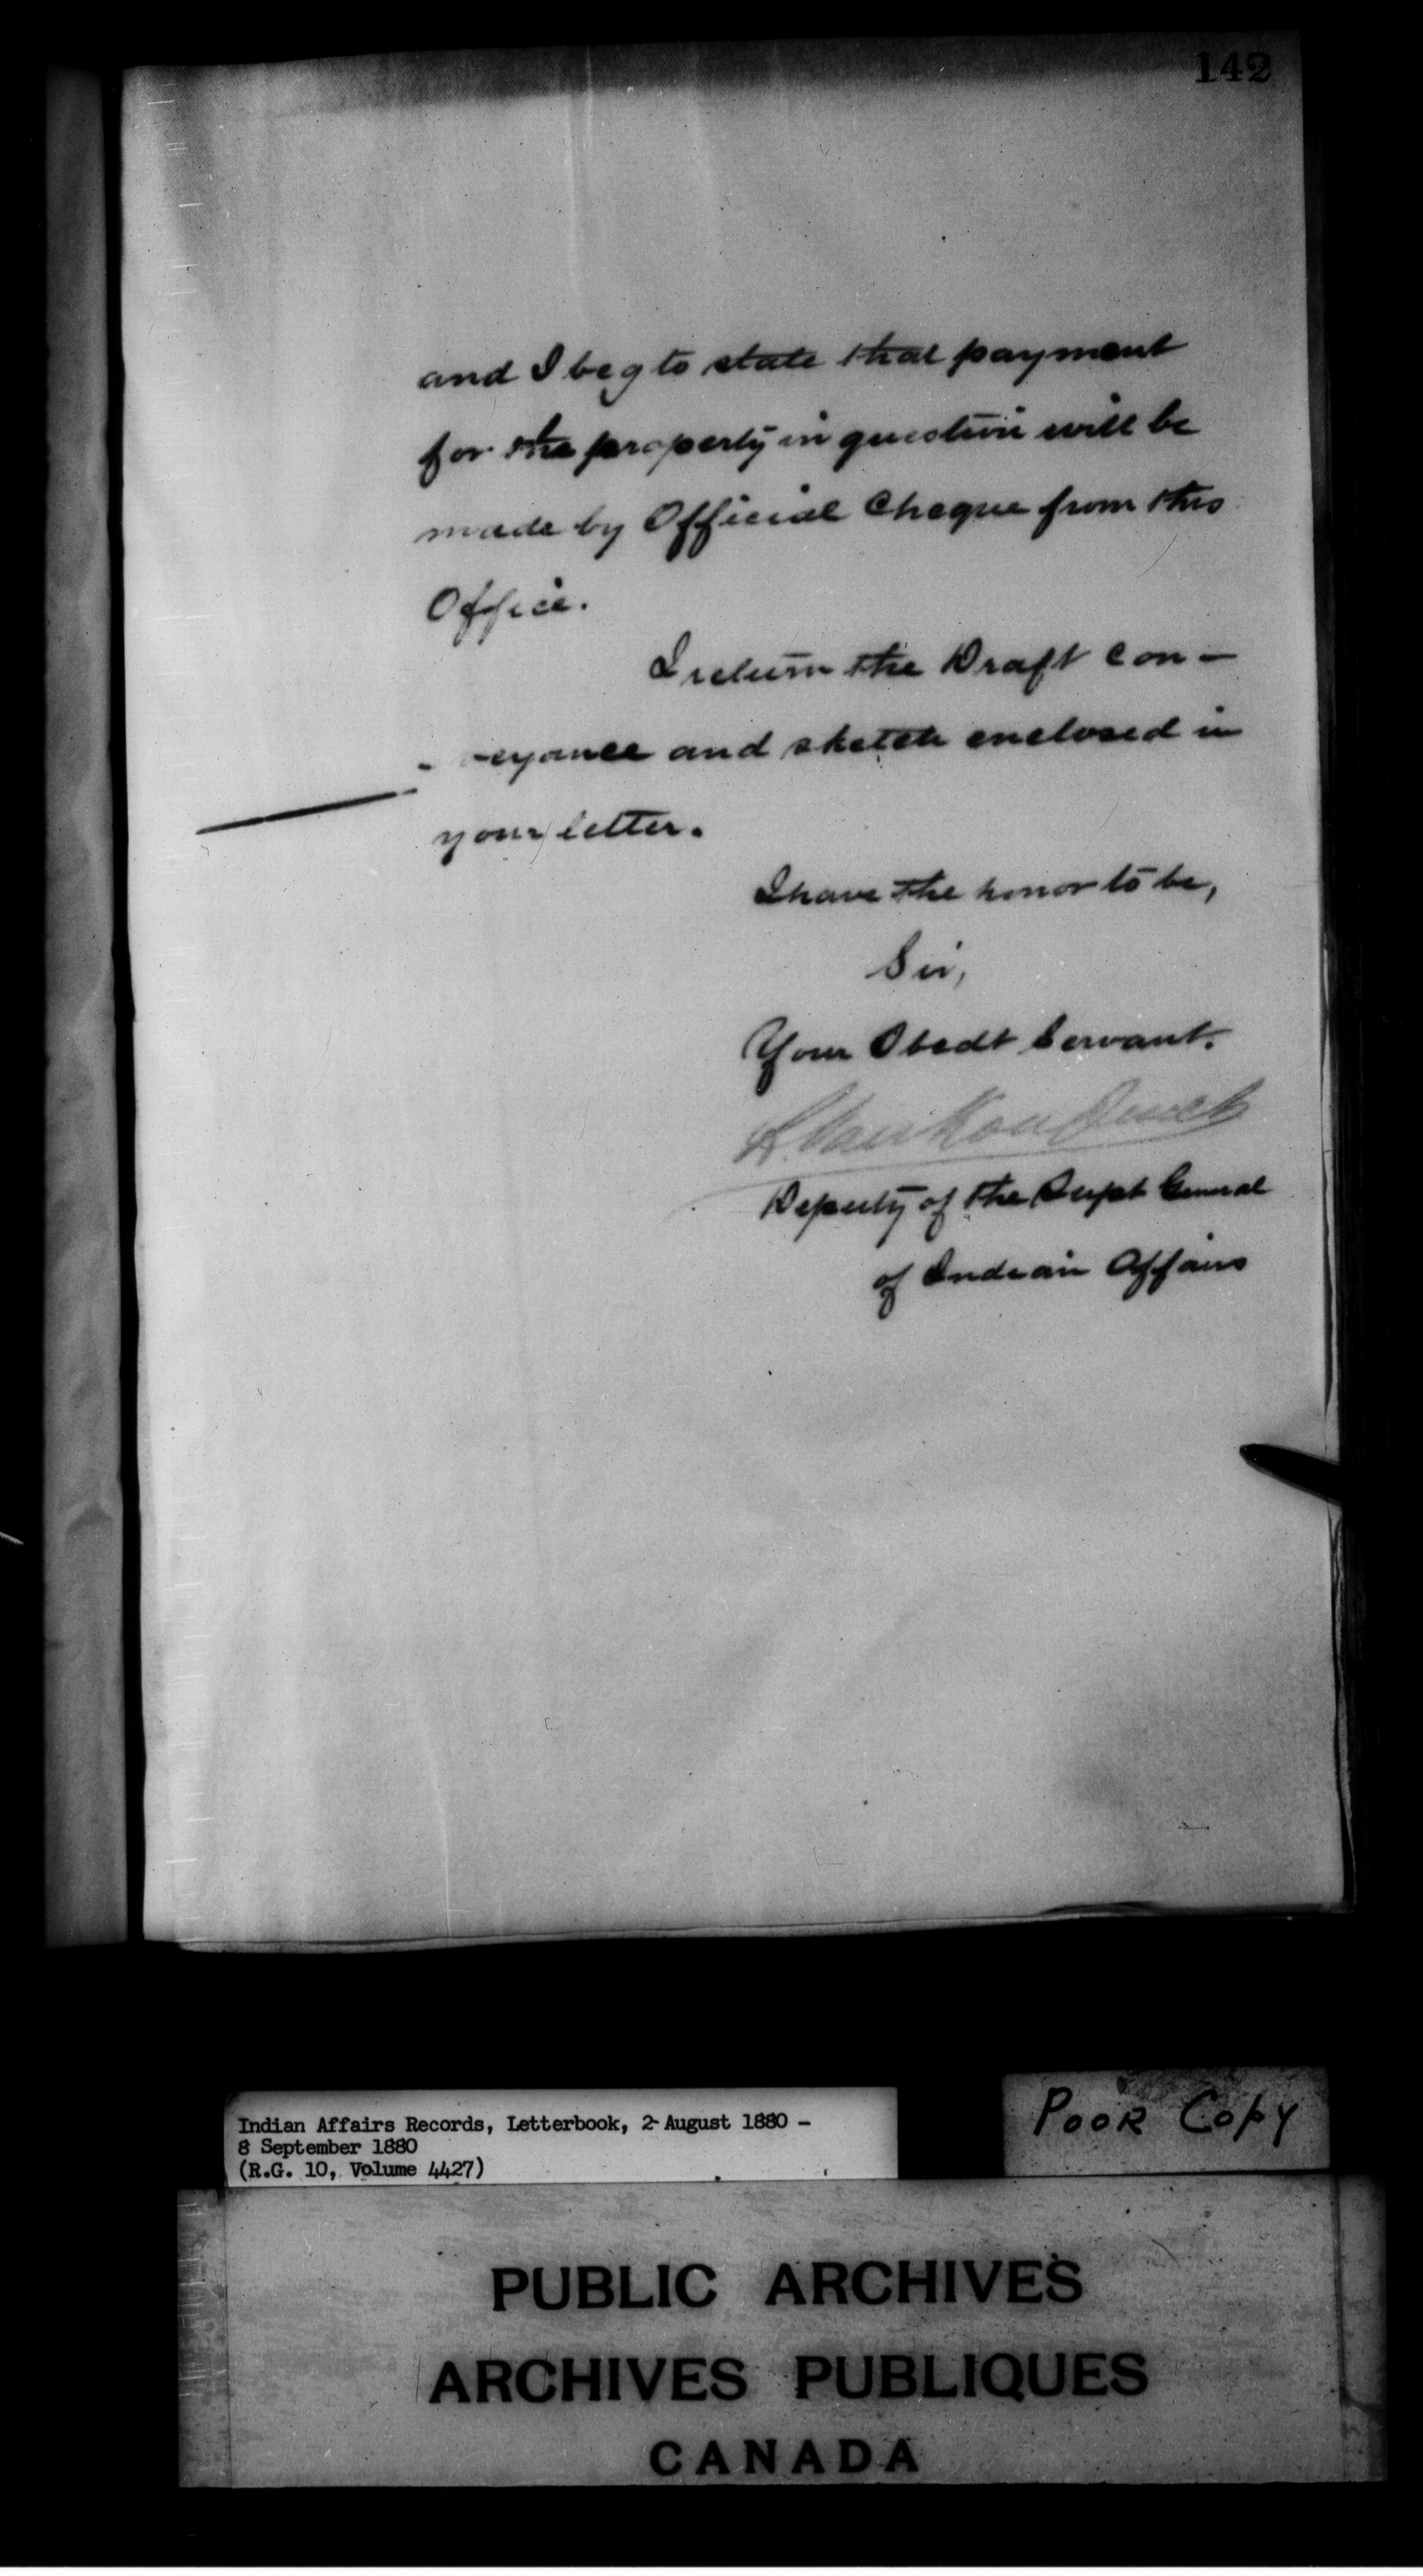 142
and I beg to state that payment
for the property in question will be
made by Official Cheque from this
Office.
I return the Draft Con-
-veyance and sketch enclosed in
your letter.
I have the honor to be,
Sir,
Your Obedt Servant.
L. VanKoughnet
Deputy of the Supt General
of Indian Affairs
Indian Affairs Records, Letterbook, 2 August 1880 -
8 September 1880
(R.G. 10, Volume 4427)
POOR COPY
PUBLIC ARCHIVES
ARCHIVES PUBLIQUES
CANADA